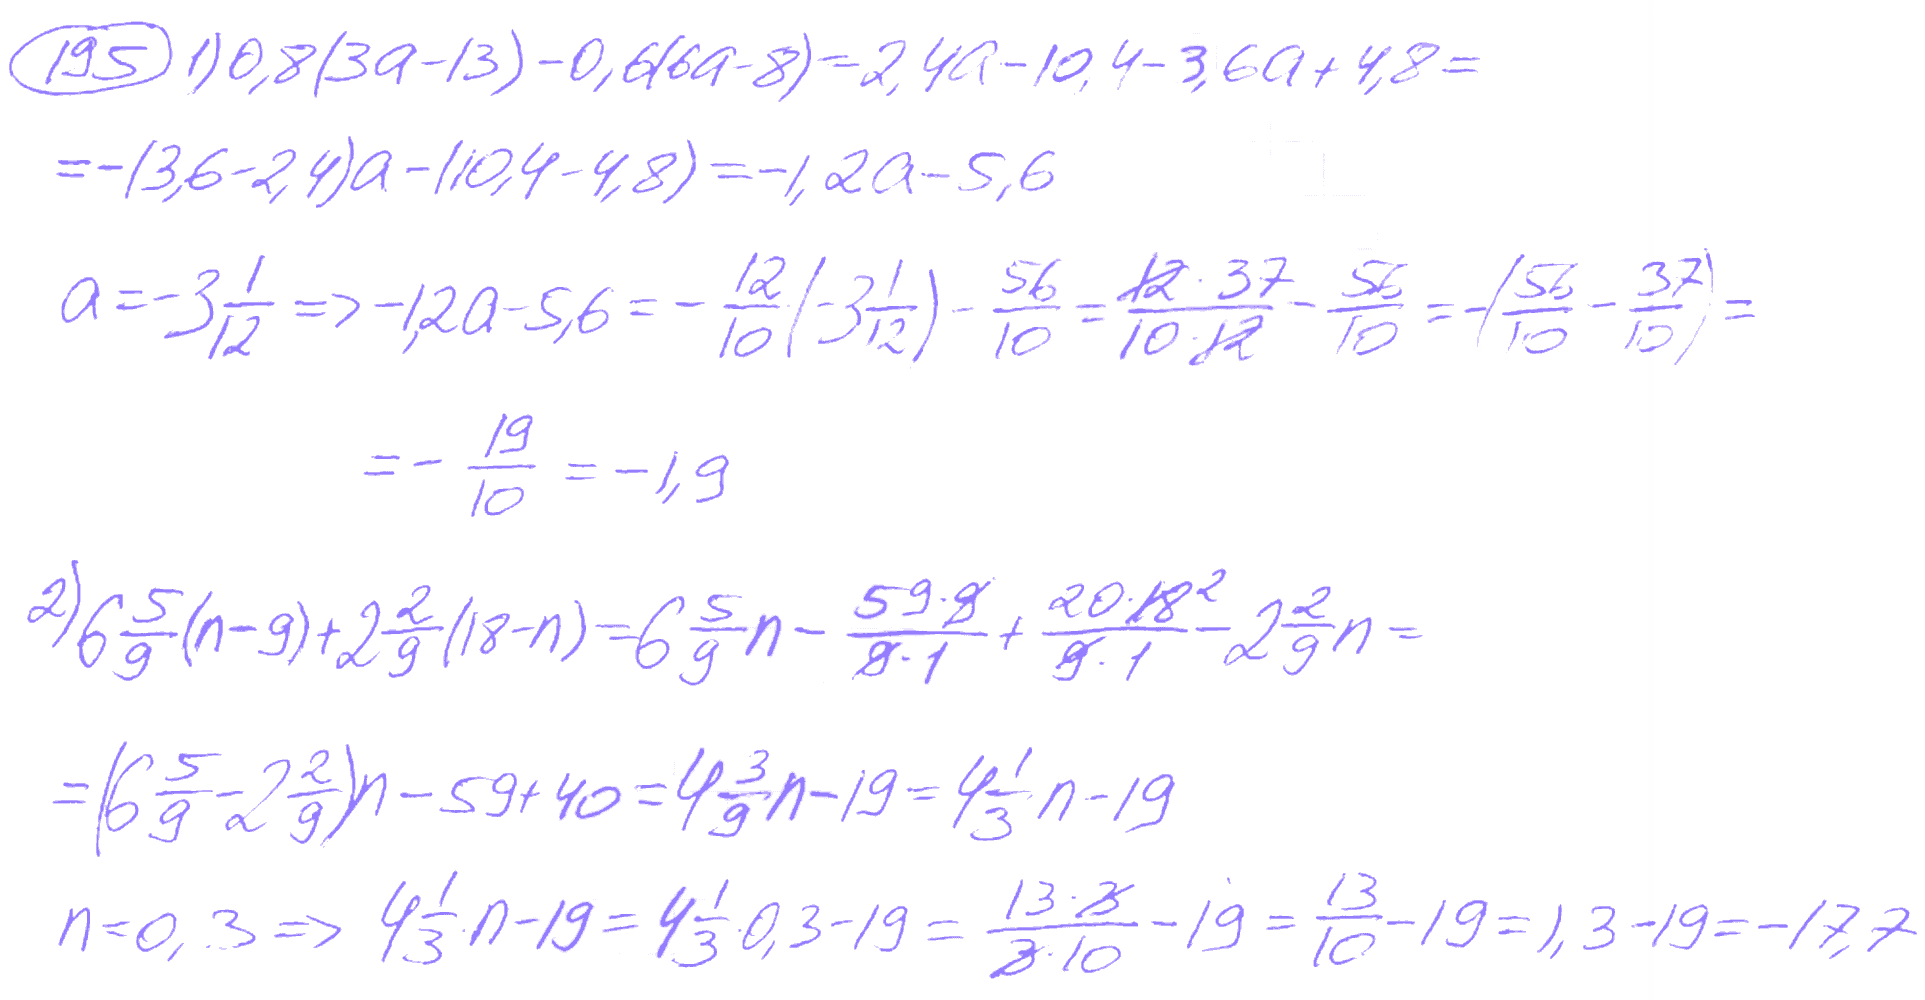 195 1) 0,8(3a-13)-0,6(6a-8)=2,4a-10,4-3,6a+4,8=
=-(3,6-2,4)a-(10,4-4,8)=-1,2a-5,6
a=-3 1/12 => -1,2a-5,6=-12/10(-3 1/12)-56/10=(12·37)/(10·12)-56/10=-(56/10-37/10)=
=-19/10=-1,9
2) 6 5/9(n-9)+2 2/9(18-n)=6 5/9 n-(59·9)/(9·1)+(20·18 2)/(9·1)-2 2/9 n=
=(6 5/9-2 2/9)n-59+40=4 3/9 n-19=4 1/3 n-19
n=0,3 => 4 1/3·n-19=4 1/3·0,3-19=(13·3)/(3·10)-19=13/10-19=1,3-19=-17,7